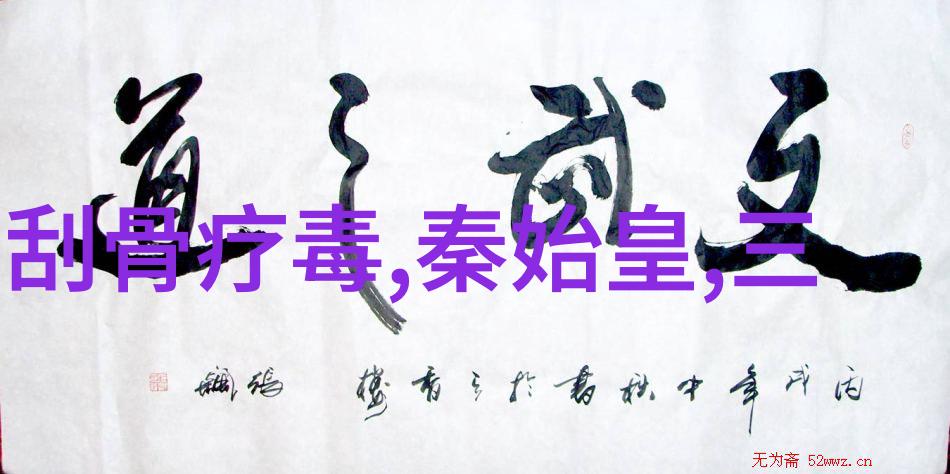 文武之道
刮骨疗毒,秦始皇,三
丙戌年中秋書於香樓
无为斋 52wwz.cn